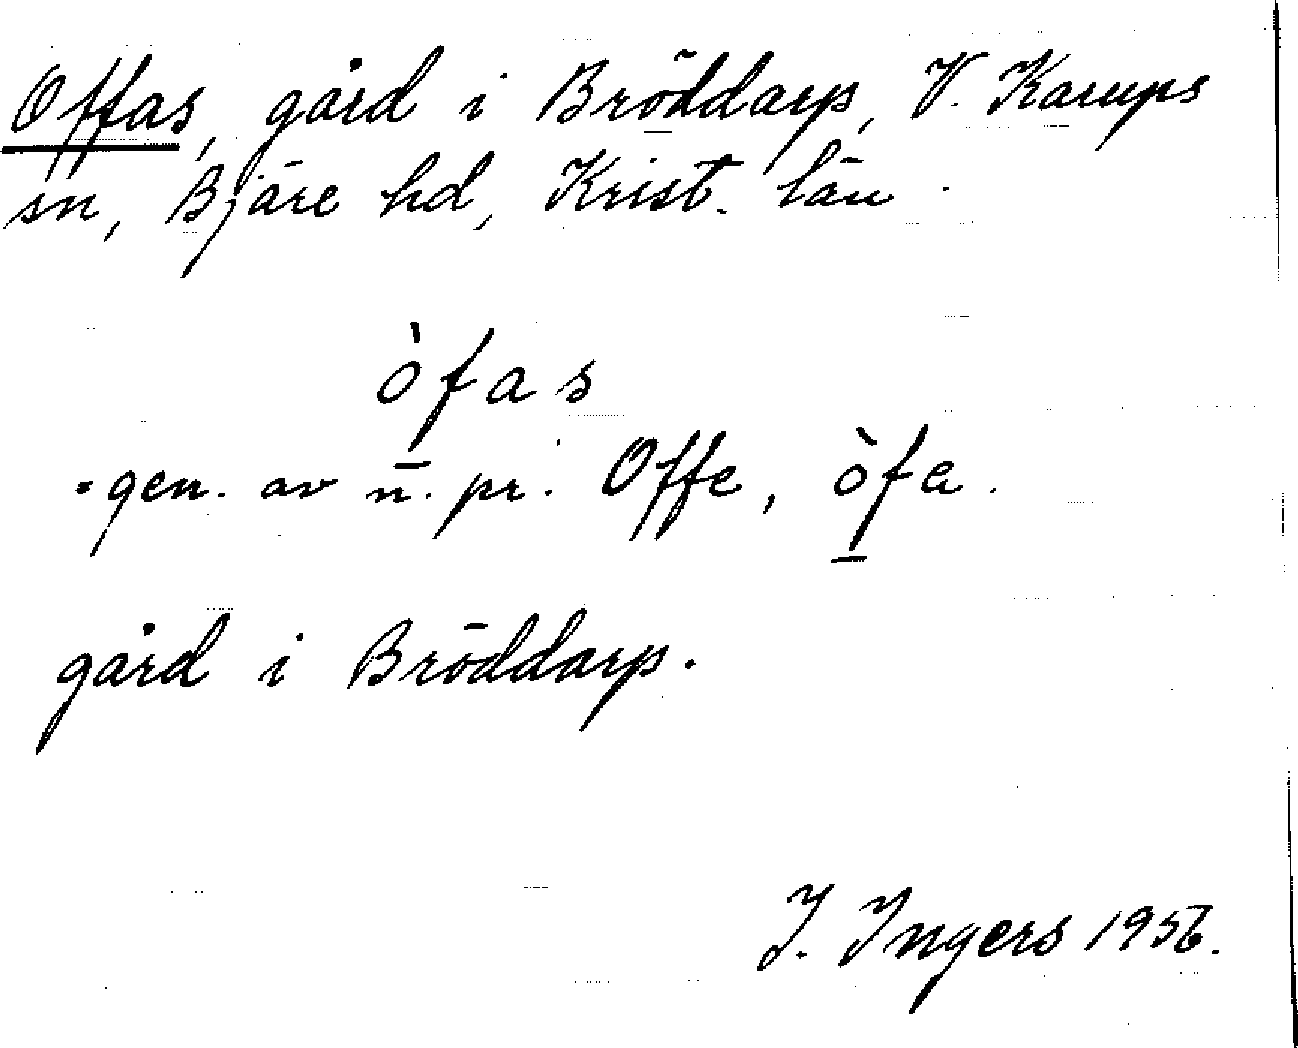 Offas, gård i Bröddarp, V. Karups
sn, Bjäre hd, Krist. län.
òfas
gen. av n. pr. Offe, òfa.
gård i Bröddarp.
I. Ingers 1956.